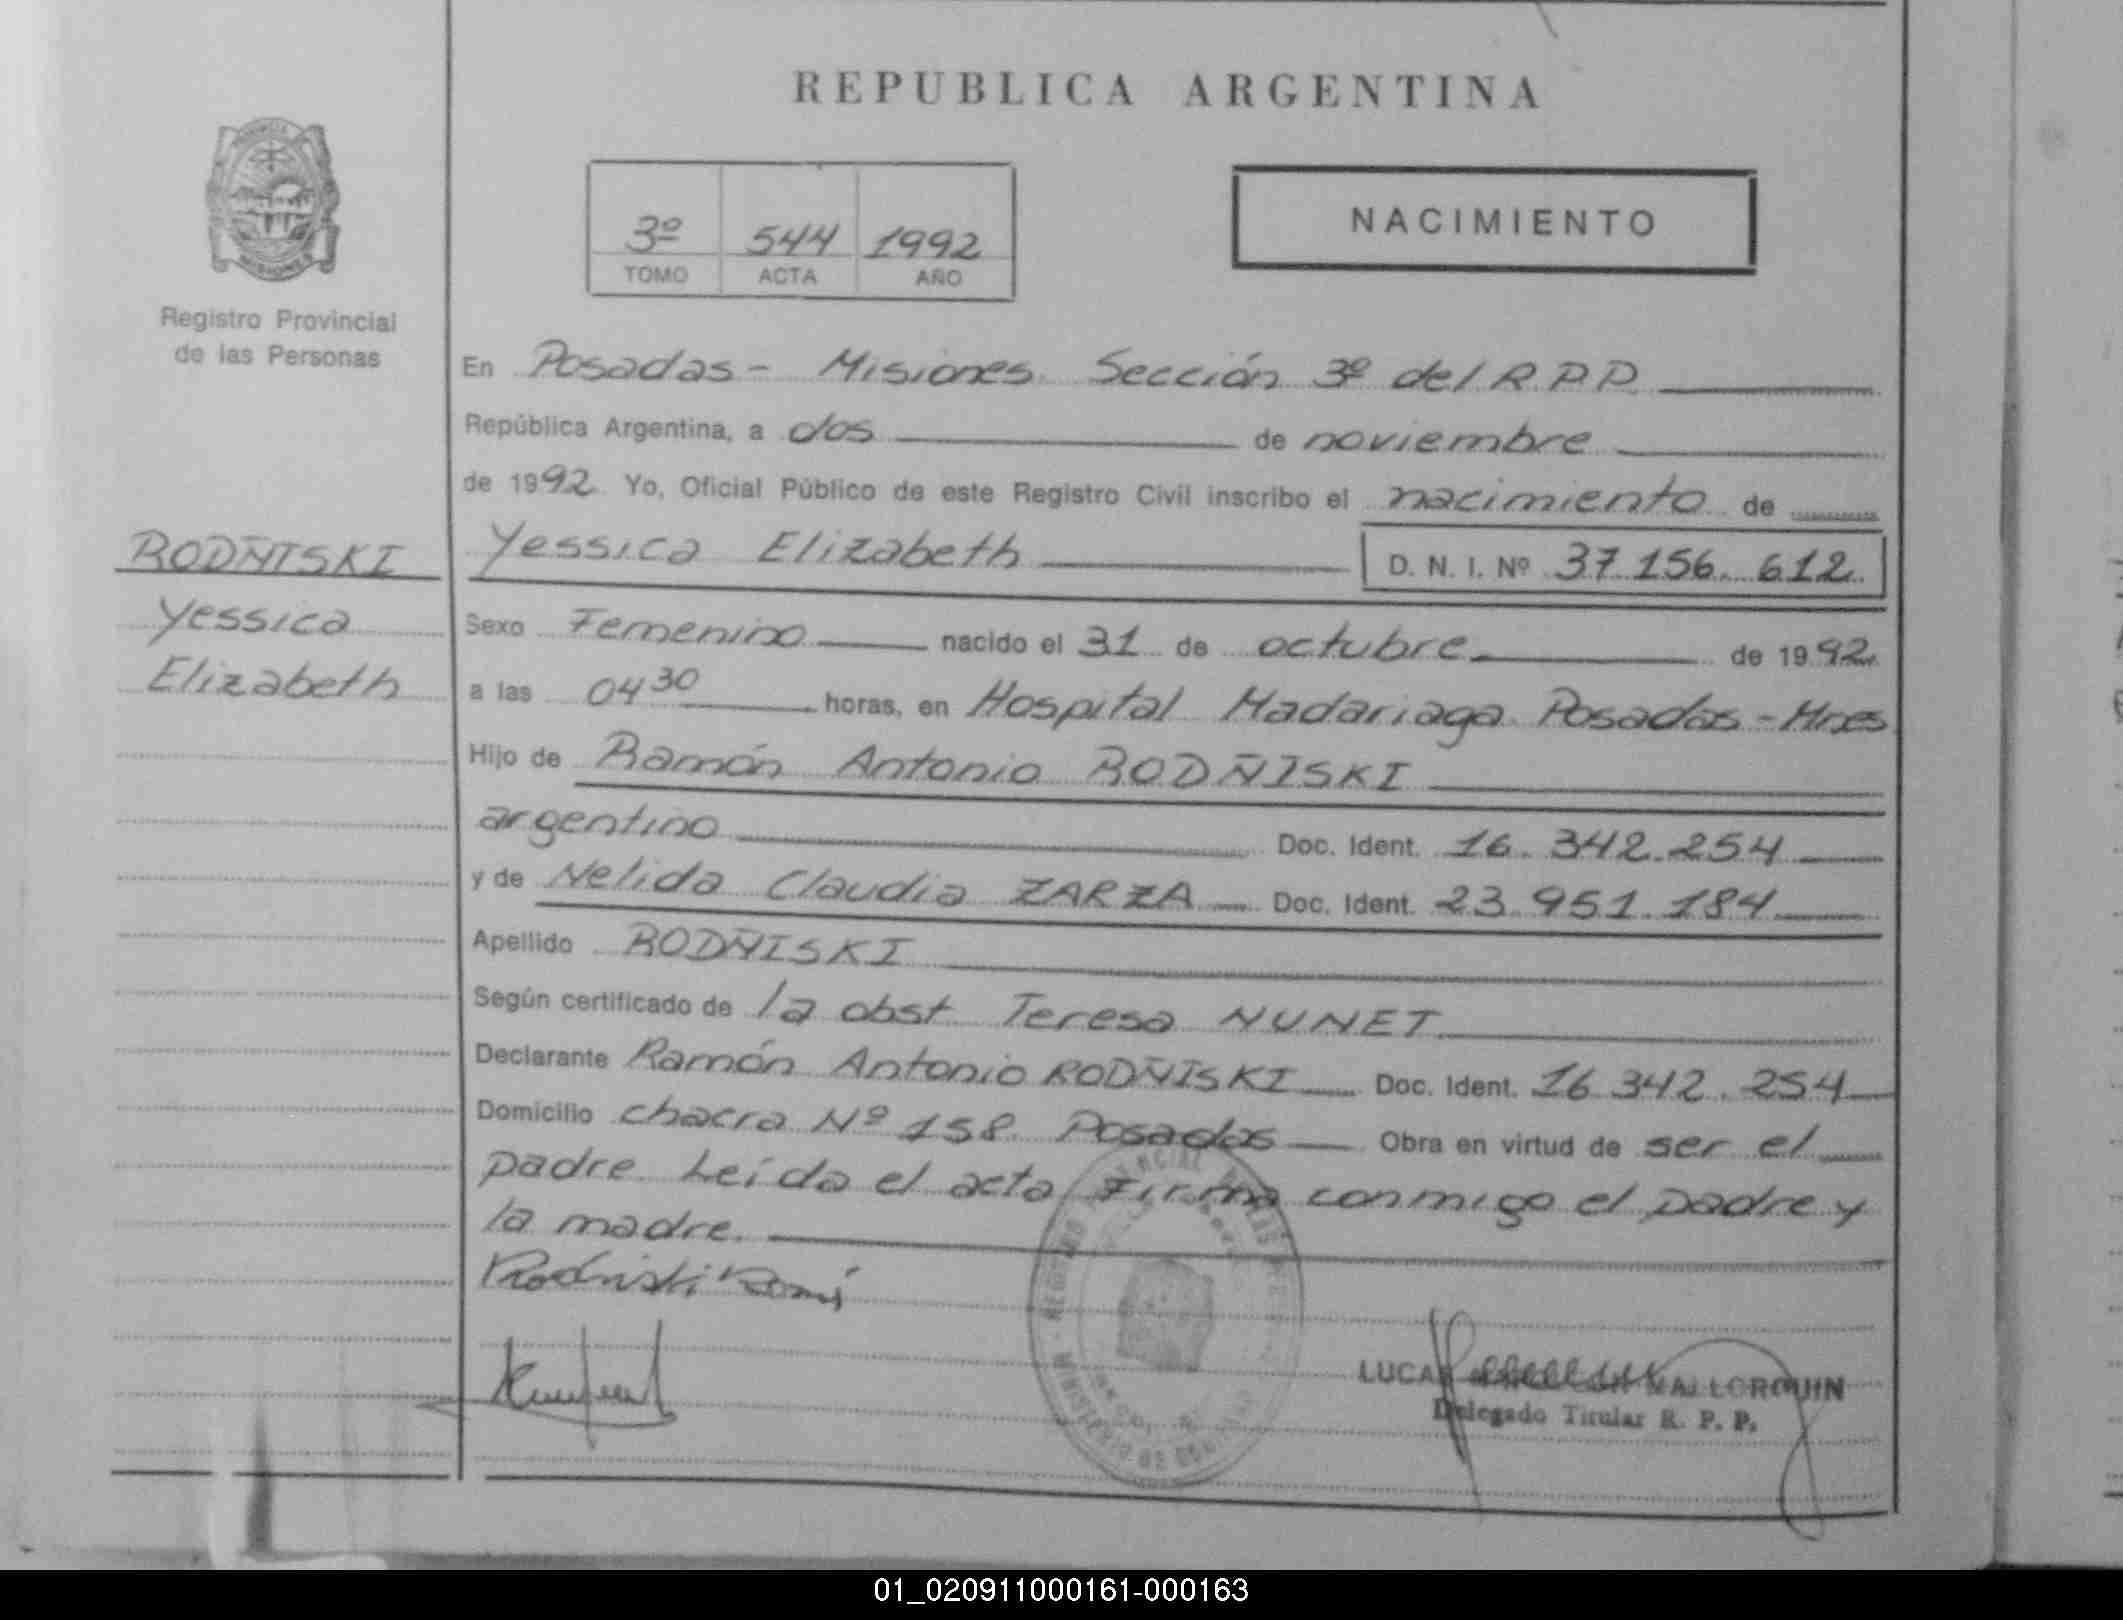 REPUBLICA ARGENTINA
3º 544 1992
TOMO ACTA AÑO
NACIMIENTO
MISIONES
Registro Provincial
de las Personas
RODÑISKI
Yessica
Elizabeth
En Posadas - Misiones. Sección 3º del R.P.P.
República Argentina, a dos de noviembre
de 1992. Yo, Oficial Público de este Registro Civil inscribo el nacimiento de
Yessica Elizabeth D. N. I. Nº 37.156.612.
Sexo Femenino nacido el 31 de octubre de 1992.
a las 04 30 horas, en Hospital Madariaga Posadas - Mnes
Hijo de Ramón Antonio RODÑISKI
argentino Doc. Ident. 16.342.254
y de Nelida Claudia ZARZA Doc. Ident. 23.951.184
Apellido RODÑISKI
Según certificado de la obst. Teresa NUNET
Declarante Ramón Antonio RODÑISKI Doc. Ident. 16.342.254
Domicilio chacra Nº 158. Posadas Obra en virtud de ser el
padre. Leída el acta Firma conmigo el padre y
la madre.
LUCAS MALLORQUIN
Delegado Titular R. P. P.
01_020911000161-000163